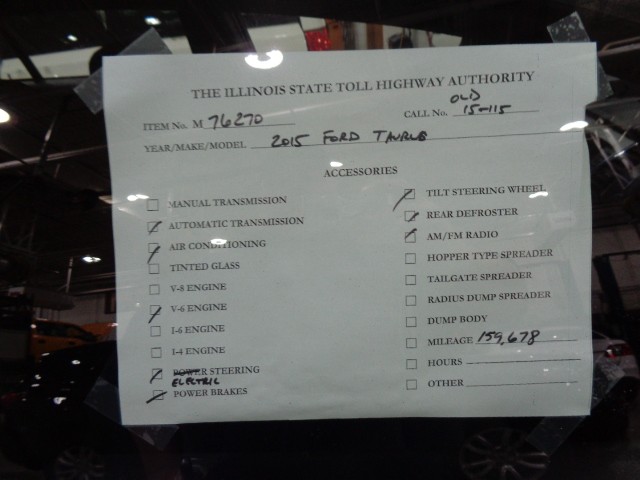 THE ILLINOIS STATE TOLL HIGHWAY AUTHORITY
ITEM No. M 76270
OLD
CALL No. 15-115
YEAR/MAKE/MODEL 2015 FORD TAURUS
ACCESSORIES
MANUAL TRANSMISSION
AUTOMATIC TRANSMISSION
AIR CONDITIONING
TINTED GLASS
V-8 ENGINE
V-6 ENGINE
I-6 ENGINE
I-4 ENGINE
POWER STEERING
ELECTRIC
POWER BRAKES
TILT STEERING WHEEL
REAR DEFROSTER
AM/FM RADIO
HOPPER TYPE SPREADER
TAILGATE SPREADER
RADIUS DUMP SPREADER
DUMP BODY
MILEAGE 159,678
HOURS
OTHER